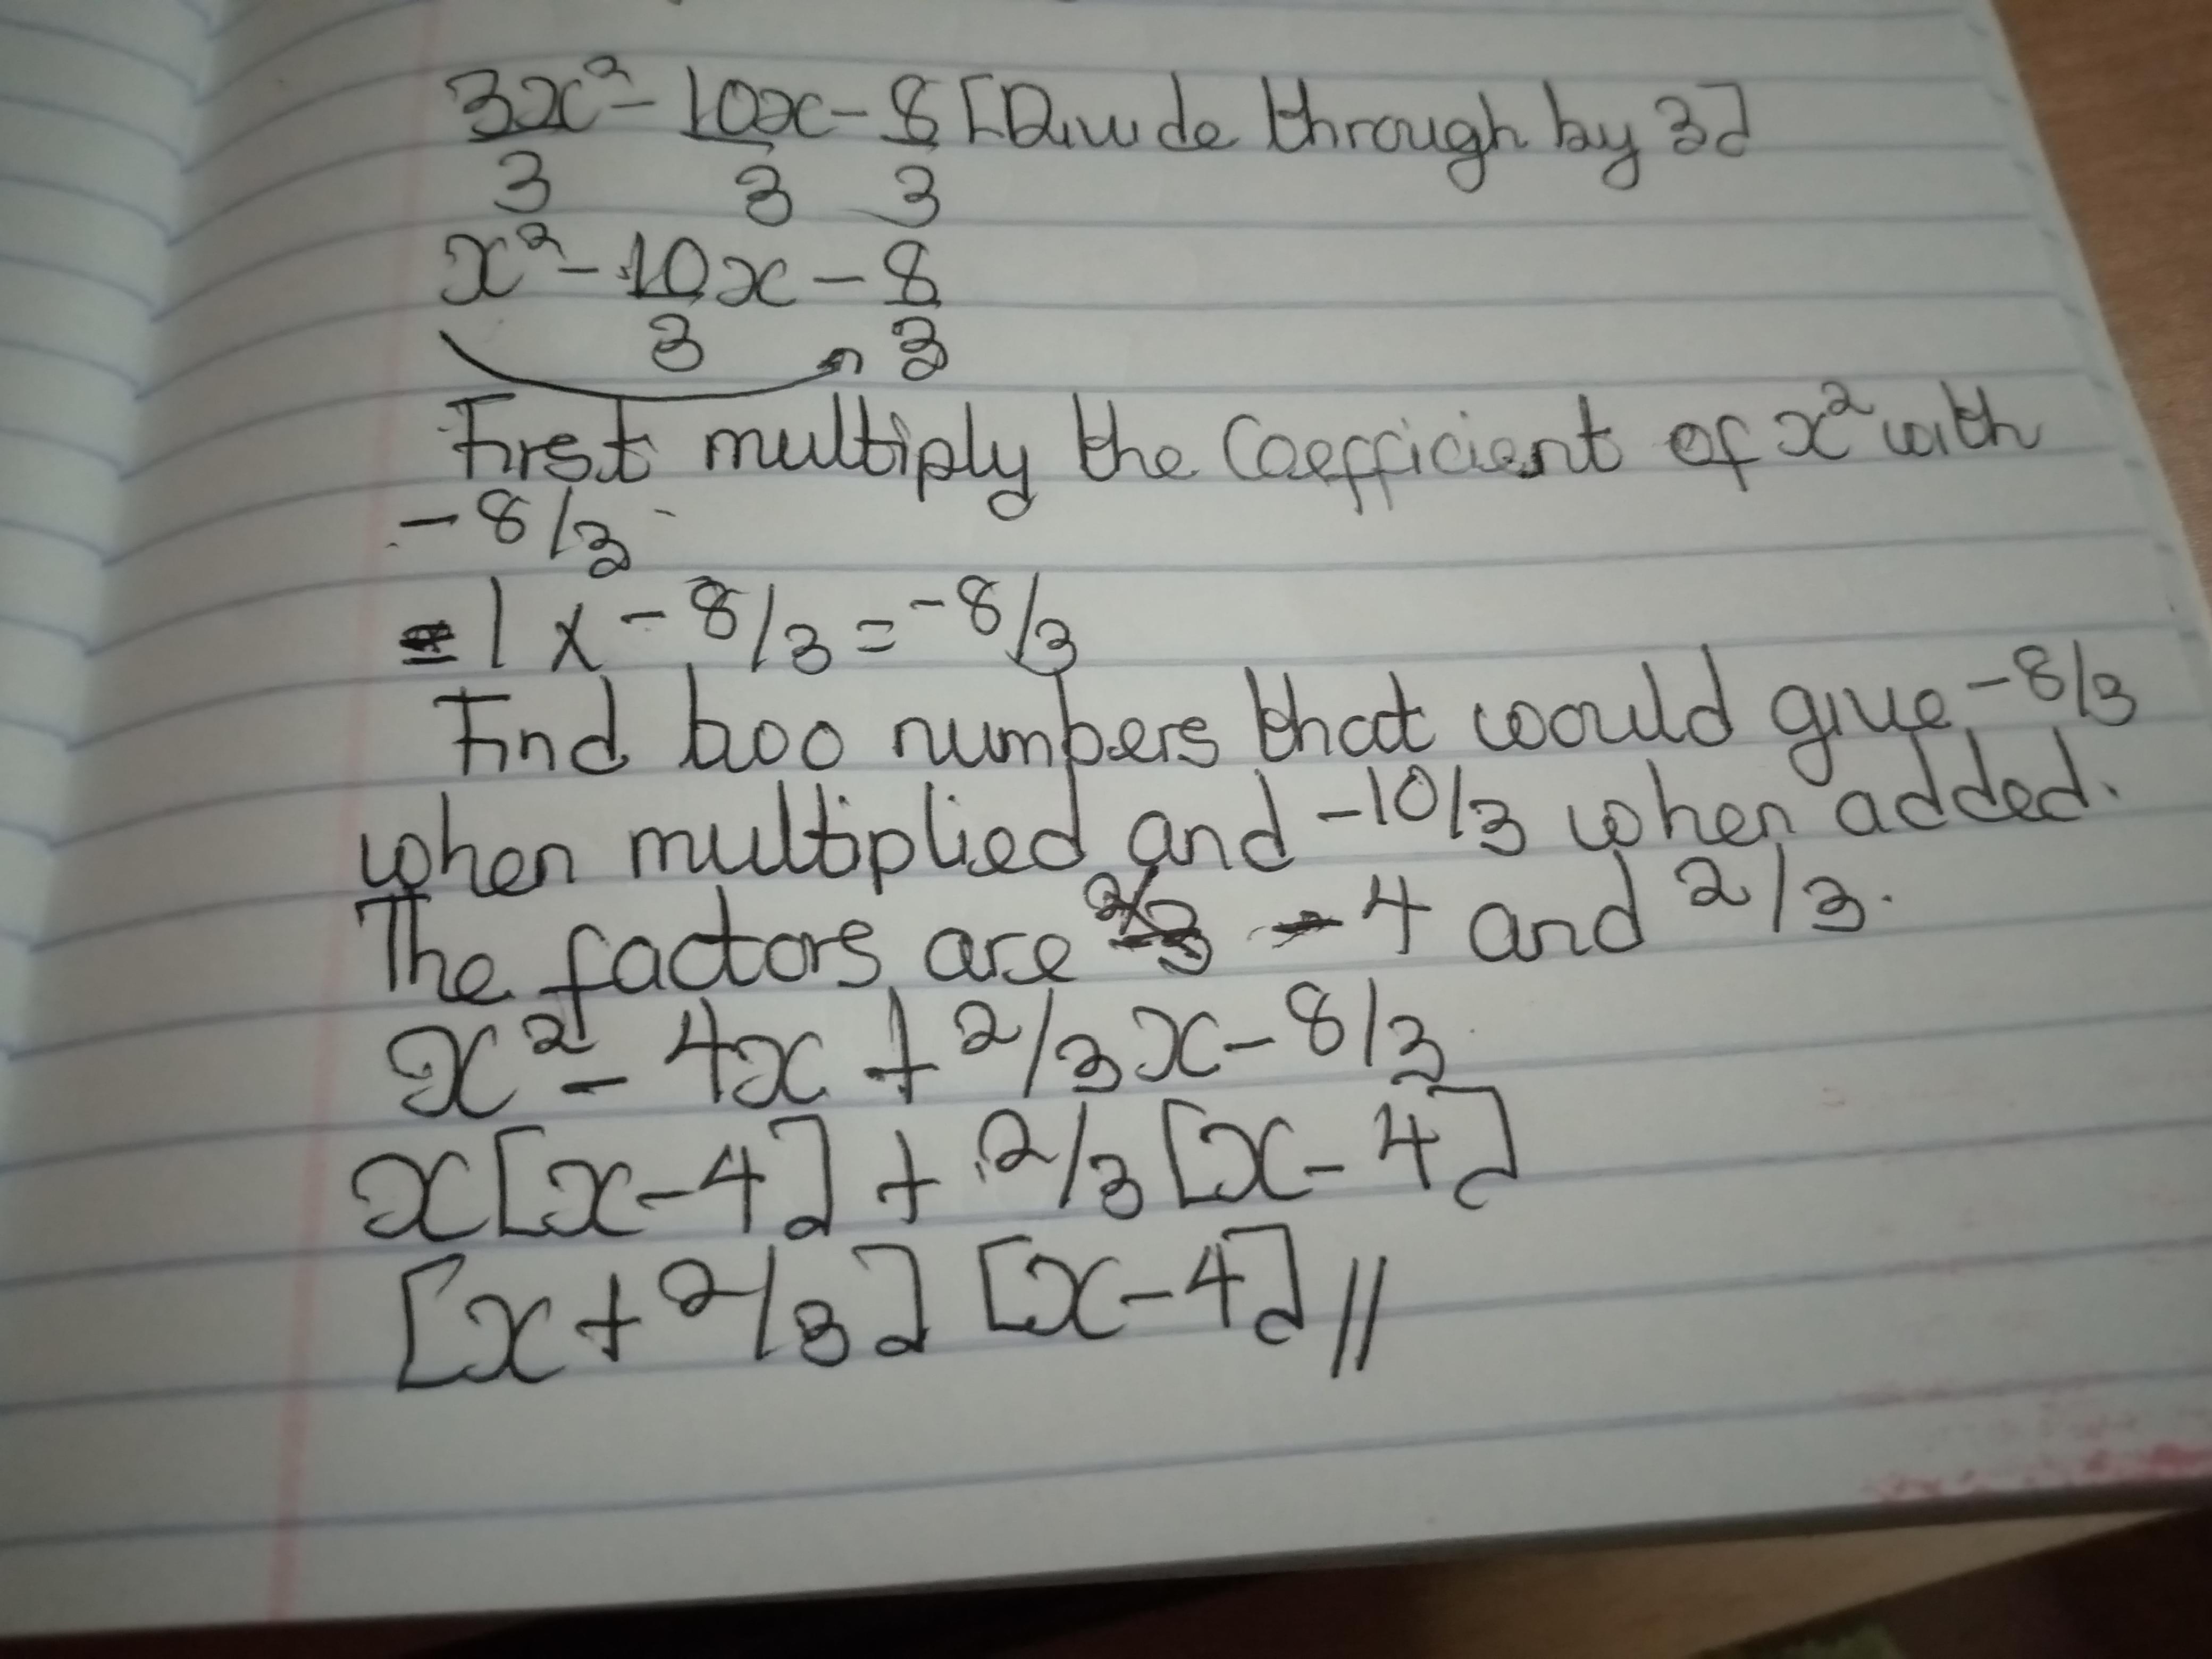 3x² - 10x - 8 [Divide through by 3]
3 3 3
x² - 10x - 8
3 3
First multiply the Coefficient of x² with
- 8/3
= 1 x - 8/3 = -8/3
Find two numbers that would give -8/3
when multiplied and -10/3 when added.
The factors are - 4 and 2/3.
x² - 4x + 2/3x - 8/3
x[x - 4] + 2/3[x - 4]
[x + 2/3] [x - 4] //